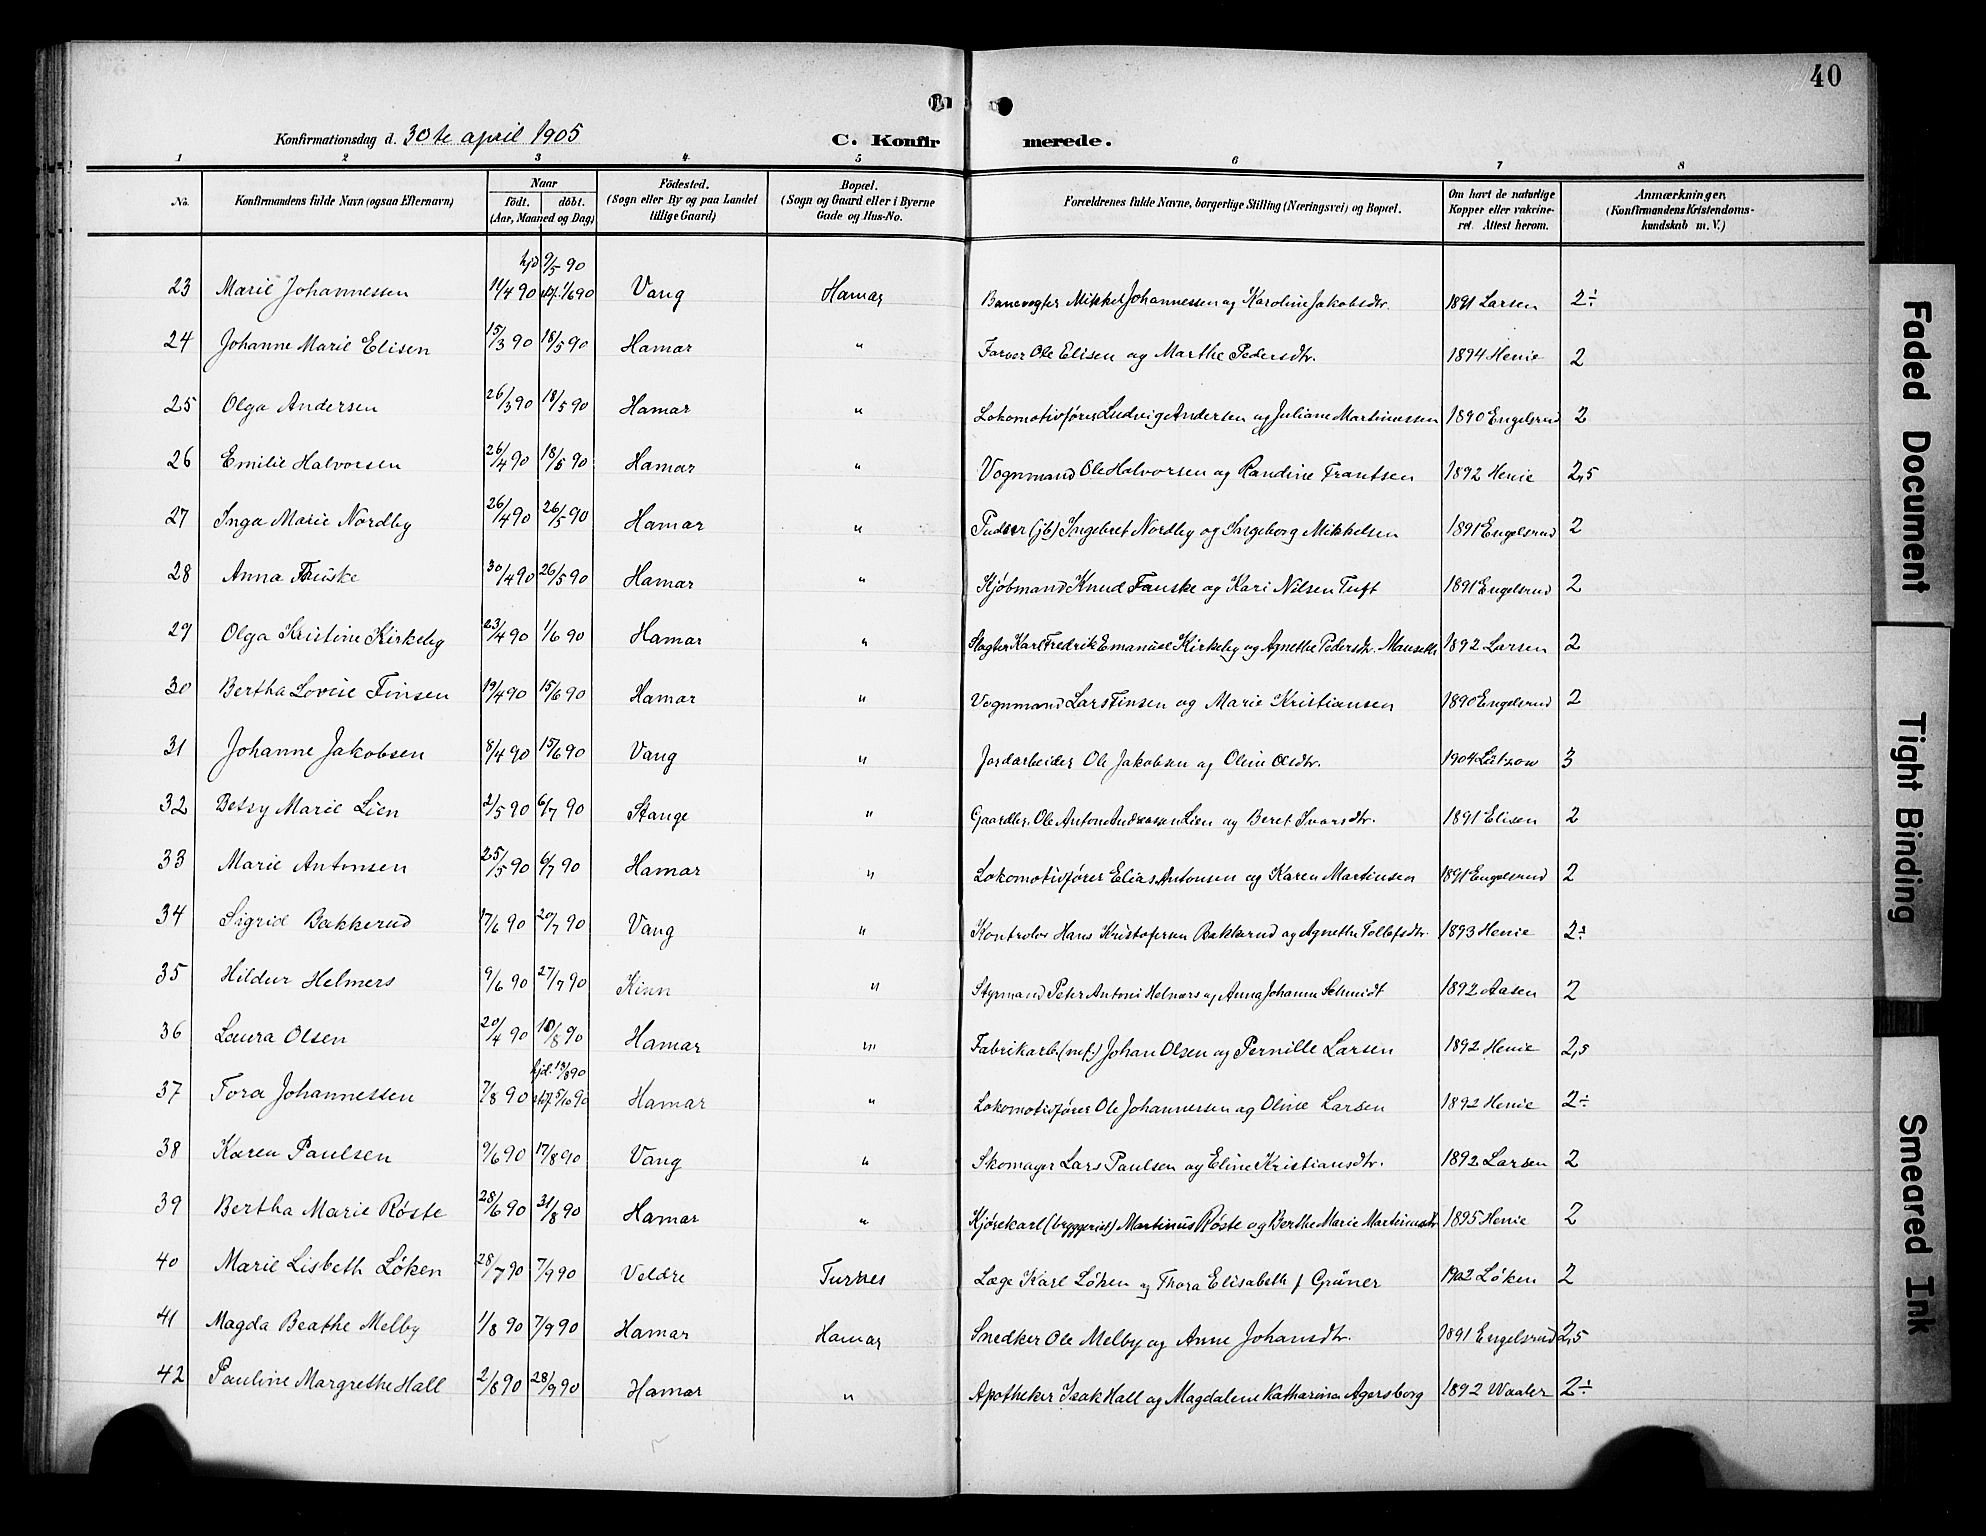 40
Konfirmationsdag d. 30te april 1905 C. Konfirmerede.
1 2 3 4 5 6 7 8
No. Konfirmandens fulde Navn (ogsaa Efternavn) Naar født. døbt. (Aar, Maaned og Dag) Fødested. (Sogn eller By og paa Landet tillige Gaard) Bopæl. (Sogn og Gaard eller i Byerne Gade og Hus-No. Forældrenes fulde Navne, borgerlige Stilling (Næringsvei) og Bopæl. Om havt de naturlige Kopper eller vakcineret. Attest herom. Anmærkninger. (Konfirmandens Kristendomskundskab m. V.)
hjd 9/5 90
23 Marie Johannessen 11/4 90 stf. 1/6 90 Vang Hamar Banevogter Mikkel Johannessen og Karoline Jakobsdtr. 1891 Larsen 2÷
24 Johanne Marie Elisen 15/3 90 18/5 90 Hamar " Farver Ole Elisen og Marthe Pedersdtr. 1894 Henie 2
25 Olga Andersen 26/3 90 18/5 90 Hamar " Lokomotivfører Ludvig Andersen og Juliane Martinussen 1890 Engelsrud 2
26 Emilie Halvorsen 26/4 90 18/5 90 Hamar " Vognmand Ole Halvorsen og Randine Frantsen 1892 Henie 2,5
27 Inga Marie Nordby 26/4 90 26/5 90 Hamar " Pudser (jb) Ingebret Nordby og Ingeborg Mikkelsen 1891 Engelsrud 2
28 Anna Fauske 30/4 90 26/5 90 Hamar " Kjøbmand Knud Fauske og Kari Nilsen Tuft 1891 Engelsrud 2
29 Olga Kristine Kirkeby 23/4 90 1/6 90 Hamar " Slagter Karl Fredrik Emanuel Kirkeby og Agnethe Pedersdtr. Mauseth 1892 Larsen 2
30 Bertha Lovise Finsen 19/4 90 15/6 90 Hamar " Vognmand Lars Finsen og Marie Kristiansen 1890 Engelsrud 2
31 Johanne Jakobsen 8/4 90 15/6 90 Vang " Jordarbeider Ole Jakobsen og Oline Olsdtr. 1904 Lützow 3
32 Betsy Marie Lien 2/5 90 6/7 90 Stange " Gaardbr. Ole Anton Andreassen Lien og Beret Ivarsdtr. 1891 Elisen 2
33 Marie Antonsen 25/5 90 6/7 90 Hamar " Lokomotivfører Elias Antonsen og Karen Martinsen 1891 Engelsrud 2
34 Sigrid Bakkerud 17/6 90 20/7 90 Vang " Kontrolør Hans Kristofersen Bakkerud og Agnethe Tollefsdtr. 1893 Henie 2÷
35 Hildur Helmers 9/6 90 27/7 90 Kinn " Styrmand Peter Antoni Helmers og Anna Johanna Schmidt 1892 Aasen 2
36 Laura Olsen 20/4 90 10/8 90 Hamar " Fabrikarb. (mf.) Johan Olsen og Pernille Larsen 1892 Henie 2,5
hjd. 19/8 90
37 Tora Johannessen 7/8 90 stf. 5/10 90 Hamar " Lokomotivfører Ole Johannessen og Oline Larsen 1892 Henie 2÷
38 Karen Paulsen 9/6 90 17/8 90 Vang " Skomager Lars Paulsen og Eline Kristiansdtr. 1892 Larsen 2
39 Bertha Marie Røste 28/6 90 31/8 90 Hamar " Kjørekarl (bryggeriet) Martinus Røste og Berthe Marie Martinusdtr 1895 Henie 2
40 Marie Lisbeth Løken 28/7 90 7/9 90 Veldre Furnes Læge Karl Løken og Thora Elisabeth f Grüner 1902 Løken 2
41 Magda Beathe Melby 1/8 90 7/9 90 Hamar Hamar Snedker Ole Melby og Anne Johansdtr. 1891 Engelsrud 2,5
42 Pauline Margrethe Hall 2/8 90 28/9 90 Hamar " Apotheker Isak Hall og Magdalene Katharina Agersborg 1892 Waaler 2÷
Faded Document
Tight Binding
Smeared Ink